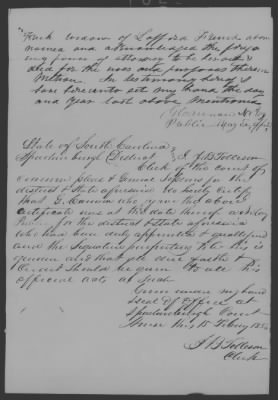 widow of Lafford French above
named and acknowledged the foregoing
power of attorney to be her act &
deed for the uses and purposes therein
In testimony whereof I
have hereunto set my hand the day
and year last above mentioned
Not Pub
State of South Carolina
Spartanburg District I J. B Tolleson
Clerk of the court of
common pleas & General Sessions for the
district & State aforesaid do hereby certify
that G. Cannon who signed the above
Certificate was at the date thereof a
for the district & State aforesaid
who have been duly appointed & qualified
and the Signature purporting to be his is
genuine and that full due faith &
Credit Should be given to all his
official acts as Such
Given under my hand
Seal of office at
Spartanburgh Court
House this 15
J B Tolleson
Clerk